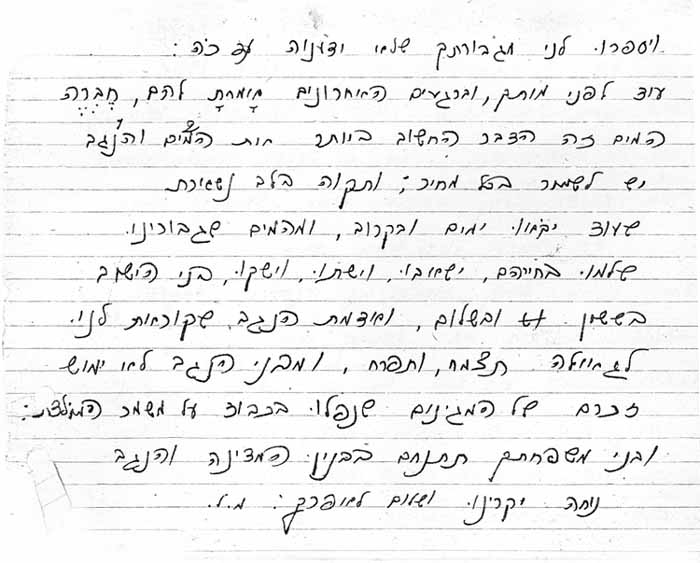 ויספרו לנו מגבורתך שלא ידענוה עד כה:
עוד לפני מותך, וברגעים האחרונים אמרת להם, חברה
המים זה הדבר החשוב ביותר את המים והנגב
יש לשמור בכל מחיר; ותקוה בלב נשארת
שעוד יבואו ימים ובקרוב, ומהמים שגבורינו
שלמו בחייהם, ישאבו, וישתו, וישקו, בני הישוב
בששון ובשלום, ואדמת הנגב, שקוראת לנו
לגאולה תצמח, ותפרח, ומבני הנגב לא ימוש
זכרם של המגינים שנפלו בכבוד על משמר המולדת:
ובני משפחתך תתנחם בבנין המדינה והנגב
נוחה יקרינו ושלום לאפרך: מ.ל.